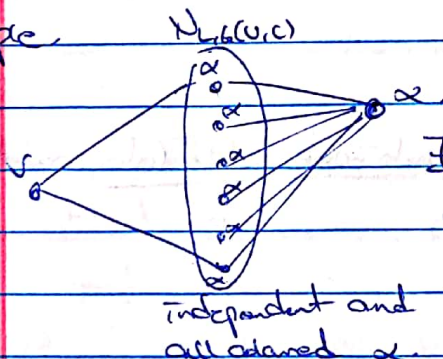 N_{L,G}(v,c)
α
α
α
α
α
α
α
v
independent and
all colored α.